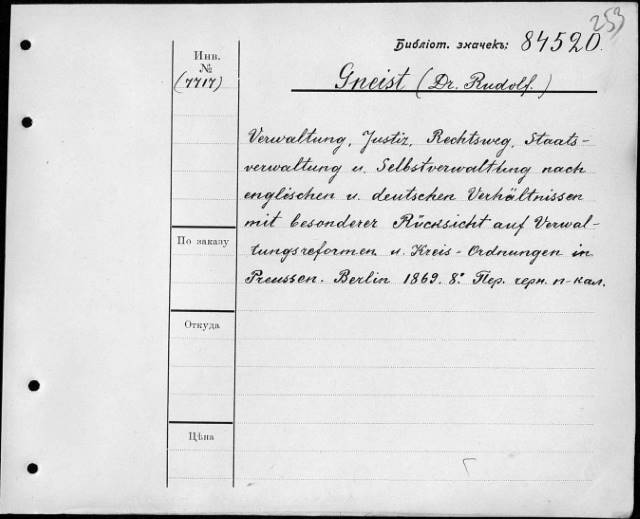 253
Библіот. значекъ: 84520.
Инв.
№
(7717)
Gneist (Dr. Rudolf.)
Verwaltung, Justiz, Rechtsweg, Staats-
verwaltung u. Selbstverwaltung nach
englischen u. deutschen Verhältnissen
mit besonderer Rücksicht auf Verwal-
tungsreformen u. Kreis-Ordnungen in
Preussen. Berlin 1869. 8º. Пер. черн. п-кал.
По заказу
Откуда
Цѣна